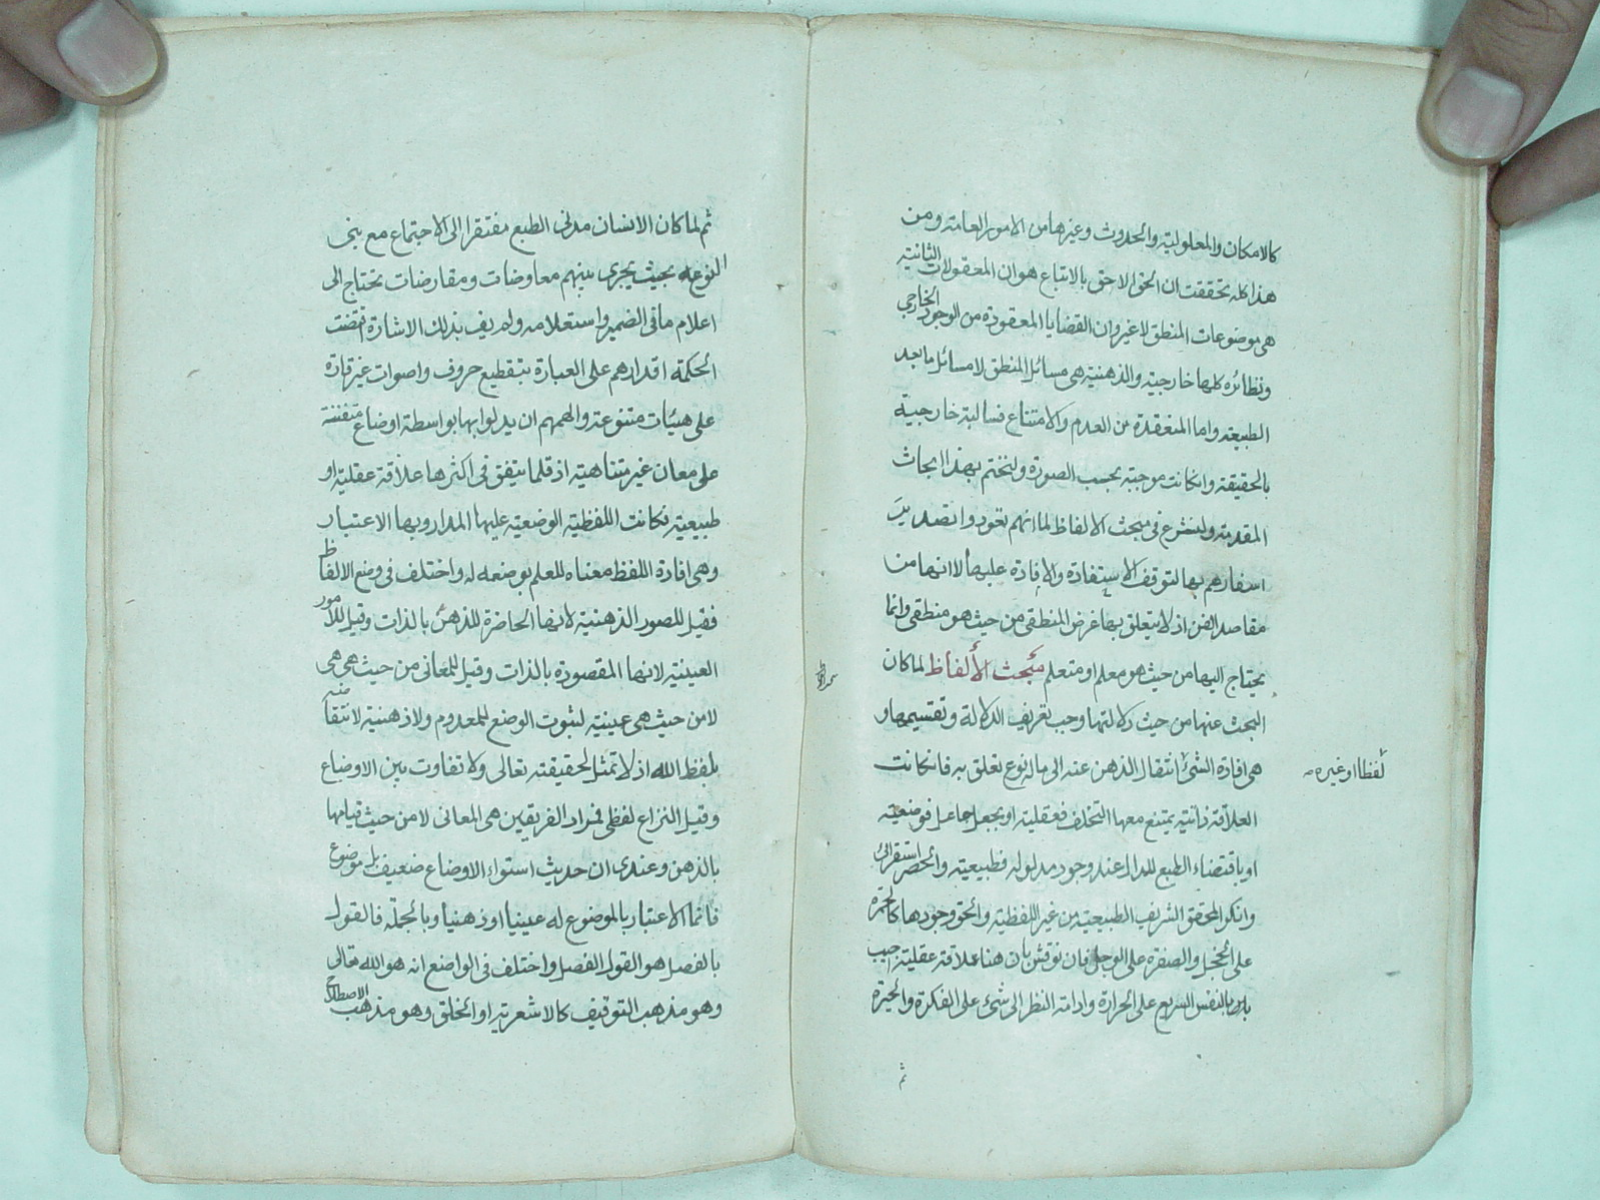 كالامكان والمعلولية والحدوث وغيرها من الامور العامة ومن
هذا كله تحققت ان الحق الاحق بالاتباع هو ان المعقولات الثانية
هى موضوعات المنطق لا غير وان القضايا المعقودة من الوجود الخارجى
ونظائره كلها خارجية والذهنية هى مسائل المنطق لا مسائل ما بعد
الطبيعة واما المنعقدة من العدم والامتناع فسالبة خارجية
بالحقيقة وان كانت موجبة بحسب الصورة ولنختم بهذا ابحاث
المقدمة ولنشرع فى مبحث الالفاظ لما انهم تعودوا تصدير
اسفارهم بها لتوقف الاستفادة والافادة عليها لا انها من
مقاصد الفن اذ لا يتعلق بها غرض المنطقى من حيث هو منطقى وانما
يحتاج اليها من حيث هو معلم او متعلم مبحث الألفاظ لما كان
البحث عنها من حيث دلالتها وجب تعريف الدلالة وتقسيمها و
هى افادة الشئ انتقال الذهن عنه الى ماله نوع تعلق به فان كانت
لفظا او غيره
العلاقة ذاتية يمتنع معها التخلف فعقلية او بجعل جاعل فوضعية
او باقتضاء الطبع للدال عند وجود مدلوله فطبيعية والحصر استقرائى
وانكر المحقق الشريف الطبيعية من غير اللفظية والحق وجودها كالحمرة
على الخجل والصفرة على الوجل فان نوقش بان هنا علاقة عقلية
النفس السريع على الحرارة وادامة النظر الى شئ على الفكرة والحيرة
ثم
ثم لما كان الانسان مدنى الطبع مفتقرا الى الاجتماع مع بنى
النوعه بحيث يجرى بينهم معاوضات ومقارضات تحتاج الى
اعلام ما فى الضمير واستعلامه ولم يف بذلك الاشارة
الحكمة اقدارهم على العبارة بتقطيع حروف واصوات غير قارة
على هيئات متنوعة والهمهم ان يدلوا بها بواسطة اوضاع متفننة
على معان غير متناهية اذ قلما يتفق فى اكثرها علاقة عقلية او
طبيعية فكانت اللفظية الوضعية عليها المدار وبها الاعتبار
وهى افادة اللفظ معناه للعلم بوضعه له واختلف فى وضع الالفاظ
فقيل للصور الذهنية لانها الحاضرة للذهن بالذات وقيل للامور
العينية لانها المقصودة بالذات وقيل للمعانى من حيث هى هى
لا من حيث هى عينية لثبوت الوضع للمعدوم ولا ذهنية لانتقاضه
بلفظ الله اذ لا تمثل لحقيقته تعالى ولا تفاوت بين الاوضاع
وقيل النزاع لفظى فمراد الفريقين هى المعانى لا من حيث قيامها
بالذهن وعندى ان حديث استواء الاوضاع ضعيف بل موضوع
فانما الاعتبار بالموضوع له عينيا او ذهنيا وبالجملة فالقول
بالفصل هو القول الفصل واختلف فى الواضع انه هو الله تعالى
وهو مذهب التوقيف كالاشعرية او الخلق وهو مذهب الاصطلاح